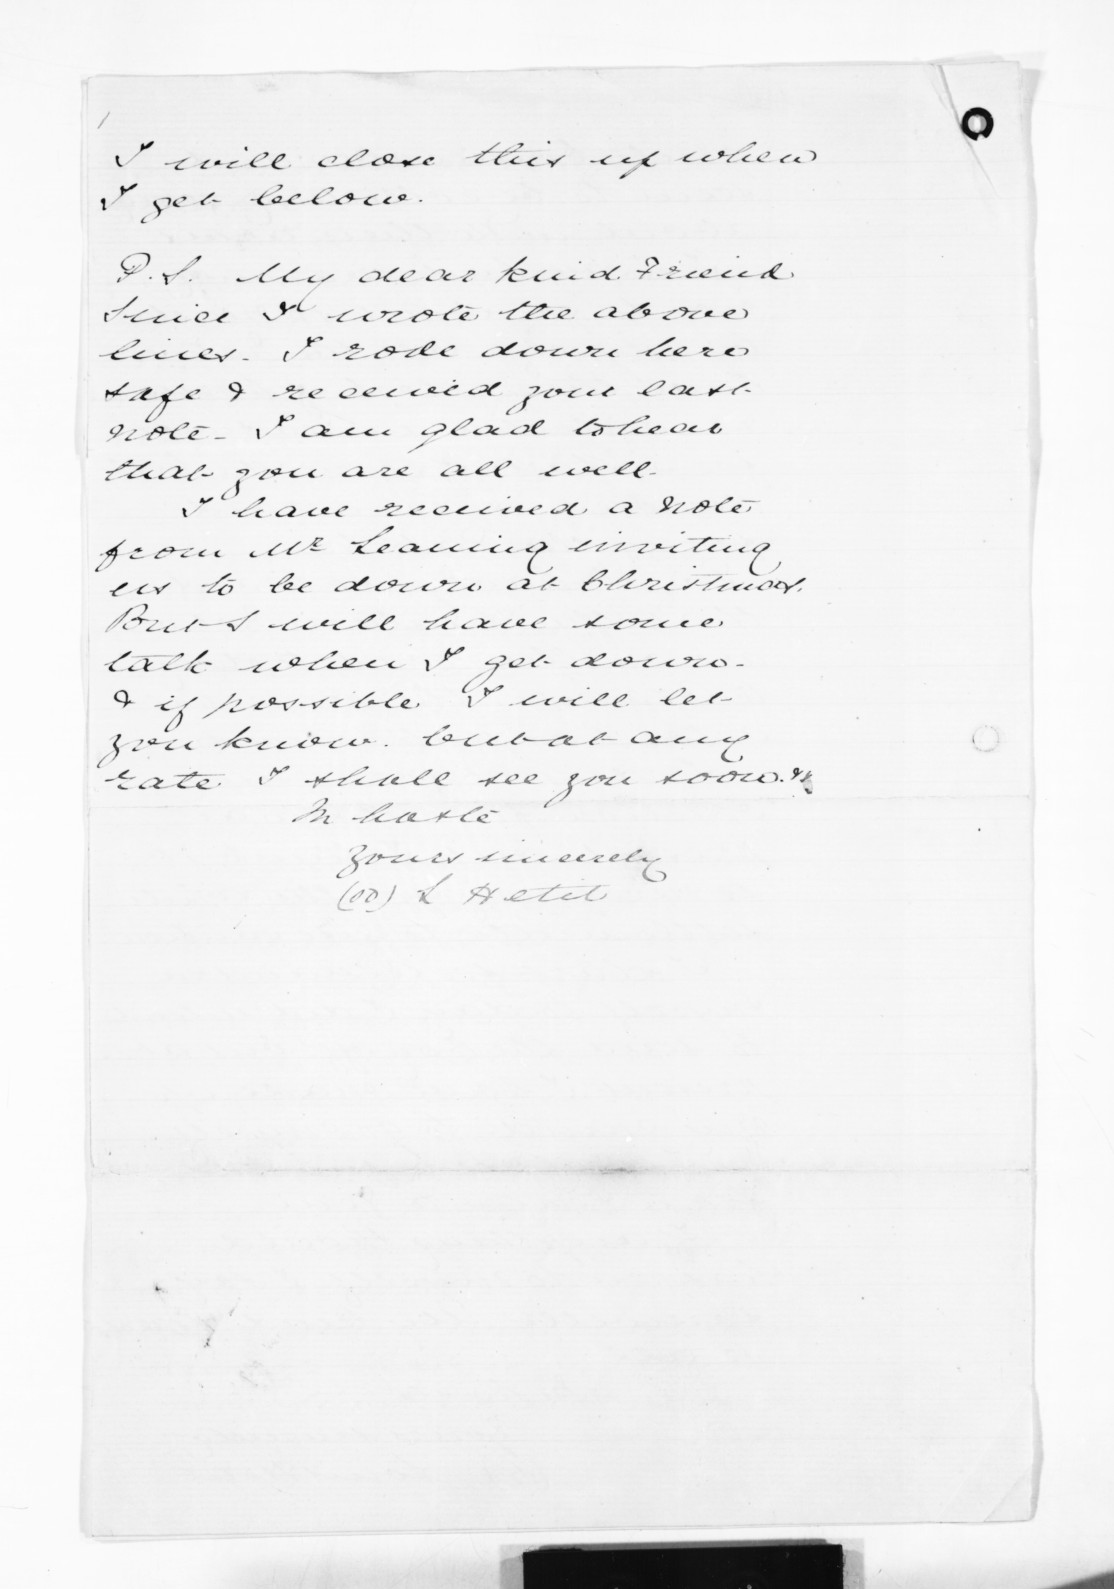 I will close this up when
I get below.
P.S. My dear kind Friend
Since I wrote the above
lines. I rode down here
safe & received your last
note - I am glad to hear
that you are all well.
I have received a note
from Mr Leaming inviting
us to be down at Christmas.
But I will have some
talk when I get down -
& if possible I will let
you know. but at any
rate I shall see you soon.
In haste
yours sincerely
L Hetit